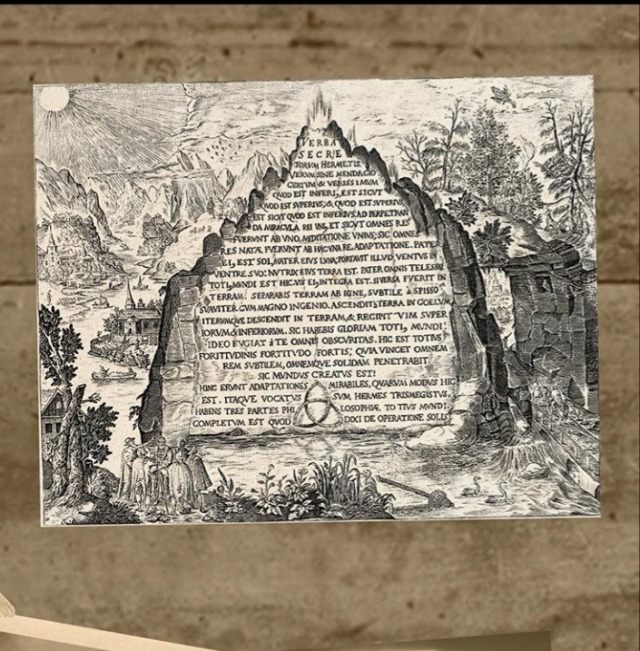 VERBA
SECRE
TORVM HERMETIS.
VERVM SINE MENDACIO
CERTVM & VERISSIMVM
QVOD EST INFERIVS, EST SICVT
QVOD EST SVPERIVS, & QVOD EST SVPERIVS,
EST SICVT QVOD EST INFERIVS, AD PERPETRAN
DA MIRACVLA REI VNIVS. ET SICVT OMNES RES
FVERVNT AB VNO, MEDITATIONE VNIVS; SIC OMNES
RES NATÆ FVERVNT AB HAC VNA RE, ADAPTATIONE. PATER
EI, EST SOL, MATER EIVS LVNA; PORTAVIT ILLVD VENTVS IN
VENTRE SVO: NVTRIX EIVS TERRA EST. PATER OMNIS TELESMI
TOTI, MVNDI EST HIC. VIS EI, INTEGRA EST. SI VERSA FVERIT IN
TERRAM. SEPARABIS TERRAM AB IGNE, SVBTILE à SPISSO
SVAVITER CVM MAGNO INGENIO. ASCENDIT à TERRA IN COELVM
ITERVMQVE DESCENDIT IN TERRAM, & RECIPIT VIM SVPER
IORVM & INFERIORVM. SIC HABEBIS GLORIAM TOTI, MVNDI:
IDEO FVGIAT à TE OMNIS OBSCVRITAS. HIC EST TOTIVS
FORTITVDINIS FORTITVDO FORTIS; QVIA VINCET OMNEM
REM SVBTILEM, OMNEMQVE SOLIDAM PENETRABIT.
SIC MVNDVS CREATVS EST!
HINC ERVNT ADAPTATIONES MIRABILES, QVARVM MODVS HIC
EST. ITAQVE VOCATVS SVM HERMES TRISMEGISTVS,
HABENS TRES PARTES PHI LOSOPHIÆ TOTIVS MVNDI
COMPLETVM EST QVOD DIXI DE OPERATIONE SOLIS